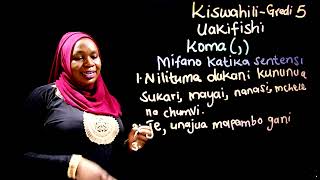 Kiswahili-Gredi 5
Uakifishi
Koma (,)
Mifano katika sentensi
1. Nilituma dukani kununua
Sukari, mayai, nanasi, mchele
na chumvi.
Je, unajua mapambo gani